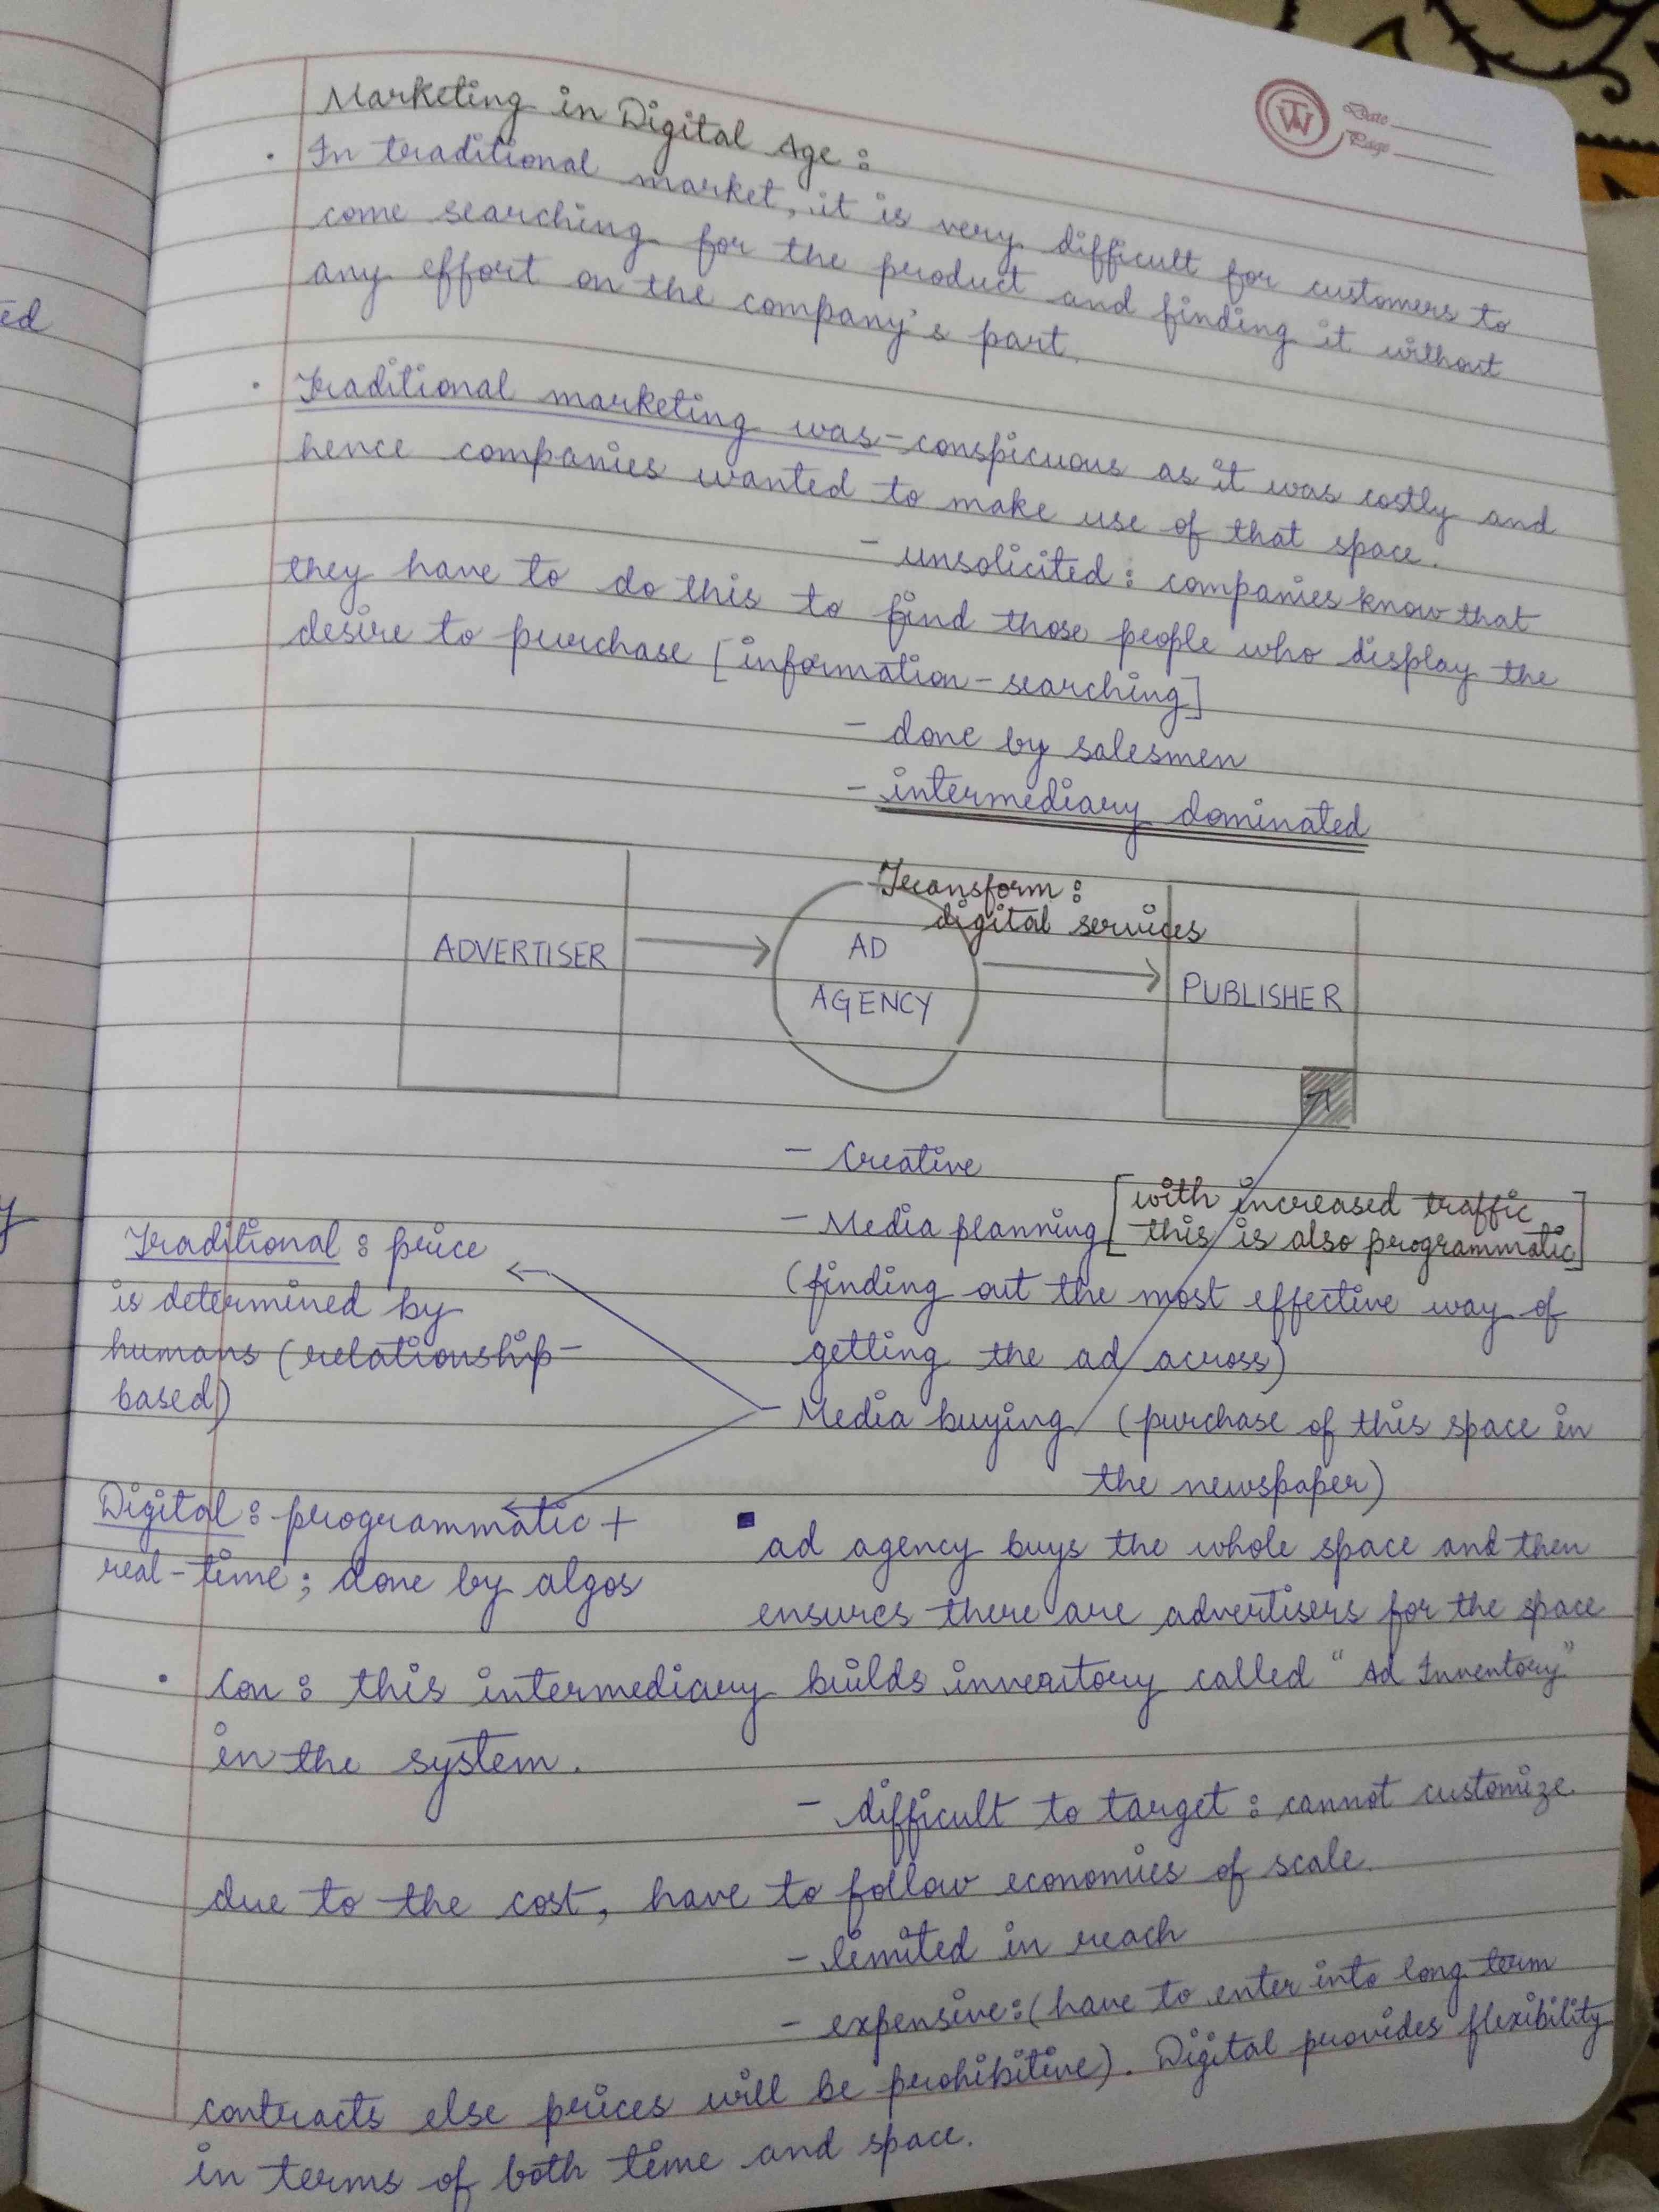 Date
Page
Marketing in Digital Age :
• In traditional market, it is very difficult for customers to
come searching for the product and finding it without
any effort on the company's part.
• Traditional marketing was - conspicuous as it was costly and
hence companies wanted to make use of that space.
- unsolicited : companies know that
they have to do this to find those people who display the
desire to purchase [information-searching]
- done by salesmen
- intermediary dominated
Transform :
digital services
ADVERTISER
AD
AGENCY
PUBLISHER
- Creative
- Media planning [with increased traffic
this is also programmatic]
(finding out the most effective way of
getting the ad across)
- Media buying (purchase of this space in
the newspaper)
Traditional : price
is determined by
humans (relationship-
based)
Digital : programmatic +
real-time ; done by algos
▪ ad agency buys the whole space and then
ensures there are advertisers for the space
• Con : this intermediary builds inventory called "Ad Inventory"
in the system.
- difficult to target : cannot customize
due to the cost, have to follow economies of scale.
- limited in reach
- expensive : (have to enter into long term
contracts else prices will be prohibitive). Digital provides flexibility
in terms of both time and space.
ed
y